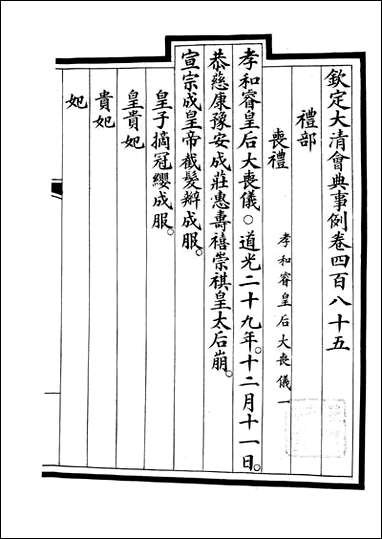 欽定大清會典事例卷四百八十五
禮部
喪禮 孝和睿皇后大喪儀一
孝和睿皇后大喪儀○道光二十九年。十二月十一日。
恭慈康豫安成莊惠壽禧崇祺皇太后崩。
宣宗成皇帝截髮辮成服。
皇子摘冠纓成服。
皇貴妃
貴妃
妃